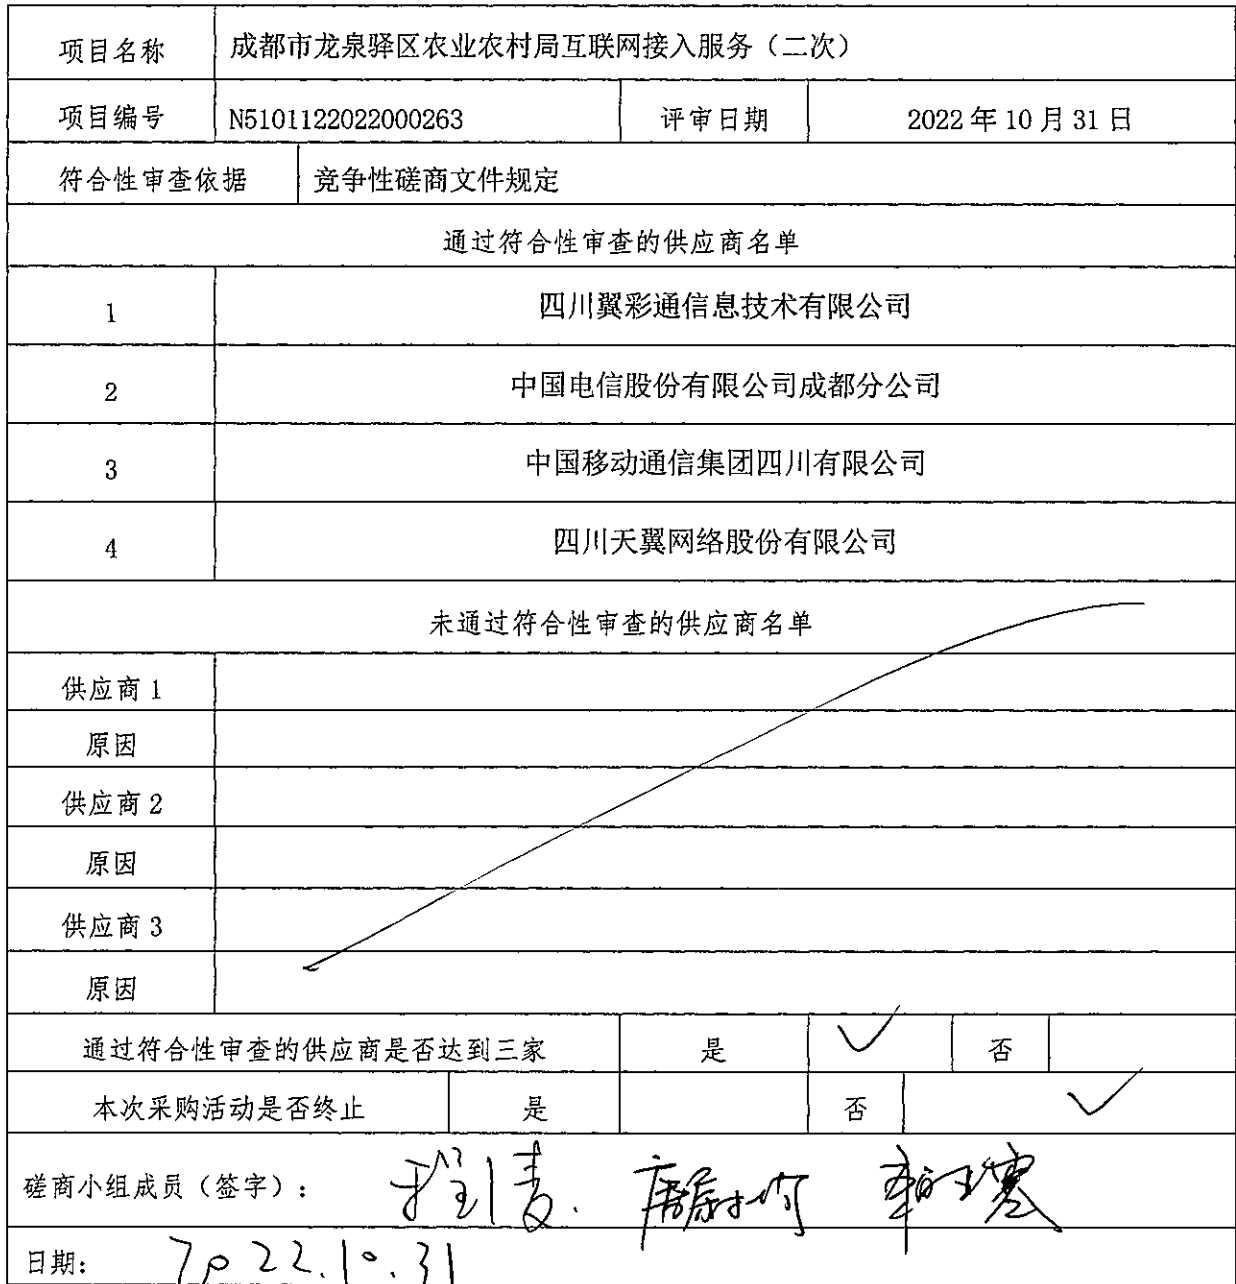 项目名称 成都市龙泉驿区农业农村局互联网接入服务（二次）
项目编号 N5101122022000263 评审日期 2022年10月31日
符合性审查依据 竞争性磋商文件规定
通过符合性审查的供应商名单
1 四川翼彩通信息技术有限公司
2 中国电信股份有限公司成都分公司
3 中国移动通信集团四川有限公司
4 四川天翼网络股份有限公司
未通过符合性审查的供应商名单
供应商1
原因
供应商2
原因
供应商3
原因
通过符合性审查的供应商是否达到三家 是 ✓ 否
本次采购活动是否终止 是 否 ✓
磋商小组成员（签字）：
日期： 2022.10.31